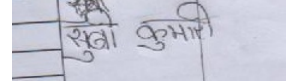 सुबी कुमारी